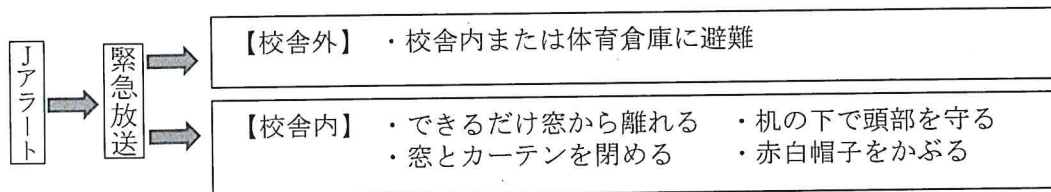 Jアラート
緊急放送
【校舎外】 ・校舎内または体育倉庫に避難
【校舎内】 ・できるだけ窓から離れる ・机の下で頭部を守る
・窓とカーテンを閉める ・赤白帽子をかぶる